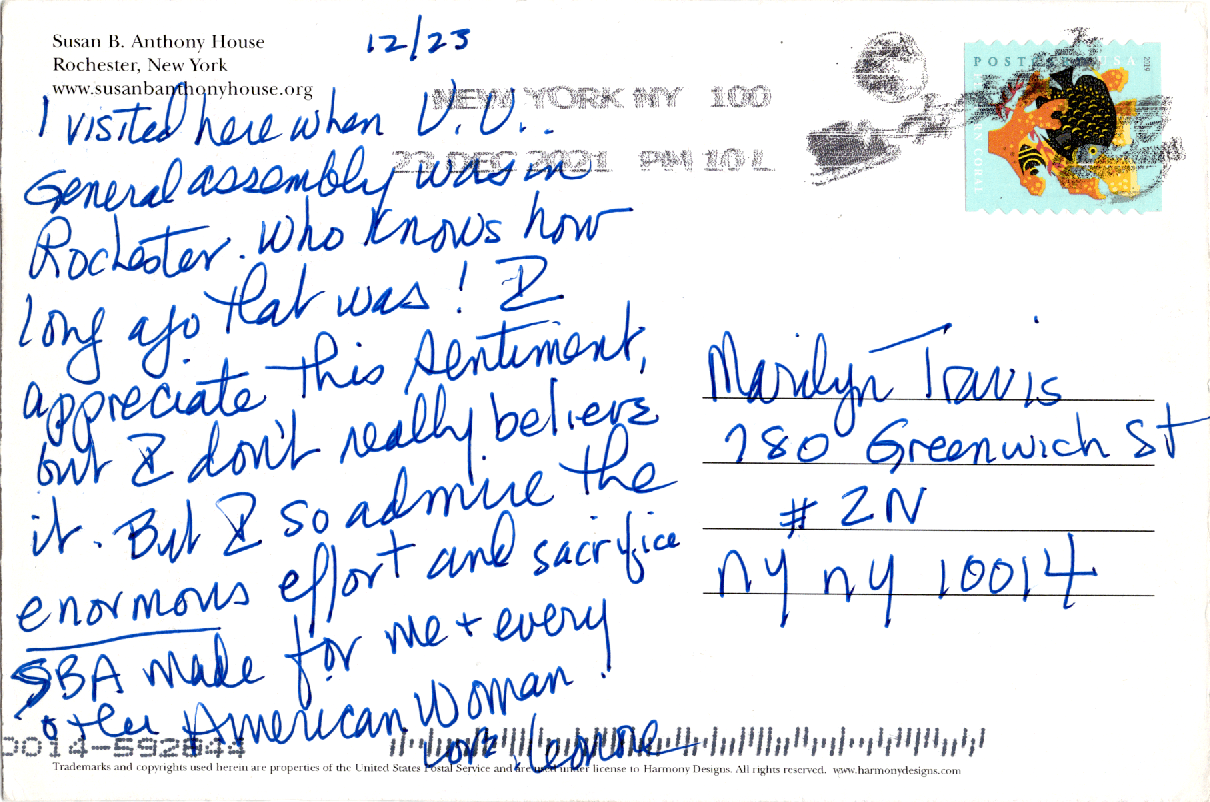 Susan B. Anthony House
Rochester, New York
www.susanbanthonyhouse.org
12/23
I visited here when U.U..
General assembly was in
Rochester. Who knows how
long ago that was! I
appreciate this sentiment,
but I don't really believe
it. But I so admire the
enormous effort and sacrifice
SBA made for me + every
other American Woman!
Love Leonore
NEW YORK NY 100
DEC 2021 PM 10 L
POSTAGE USA
Marilyn Travis
780 Greenwich St
# 2N
NY NY 10014
0014-592844
Trademarks and copyrights used herein are properties of the United States Postal Service and are used under license to Harmony Designs. All rights reserved. www.harmonydesigns.com